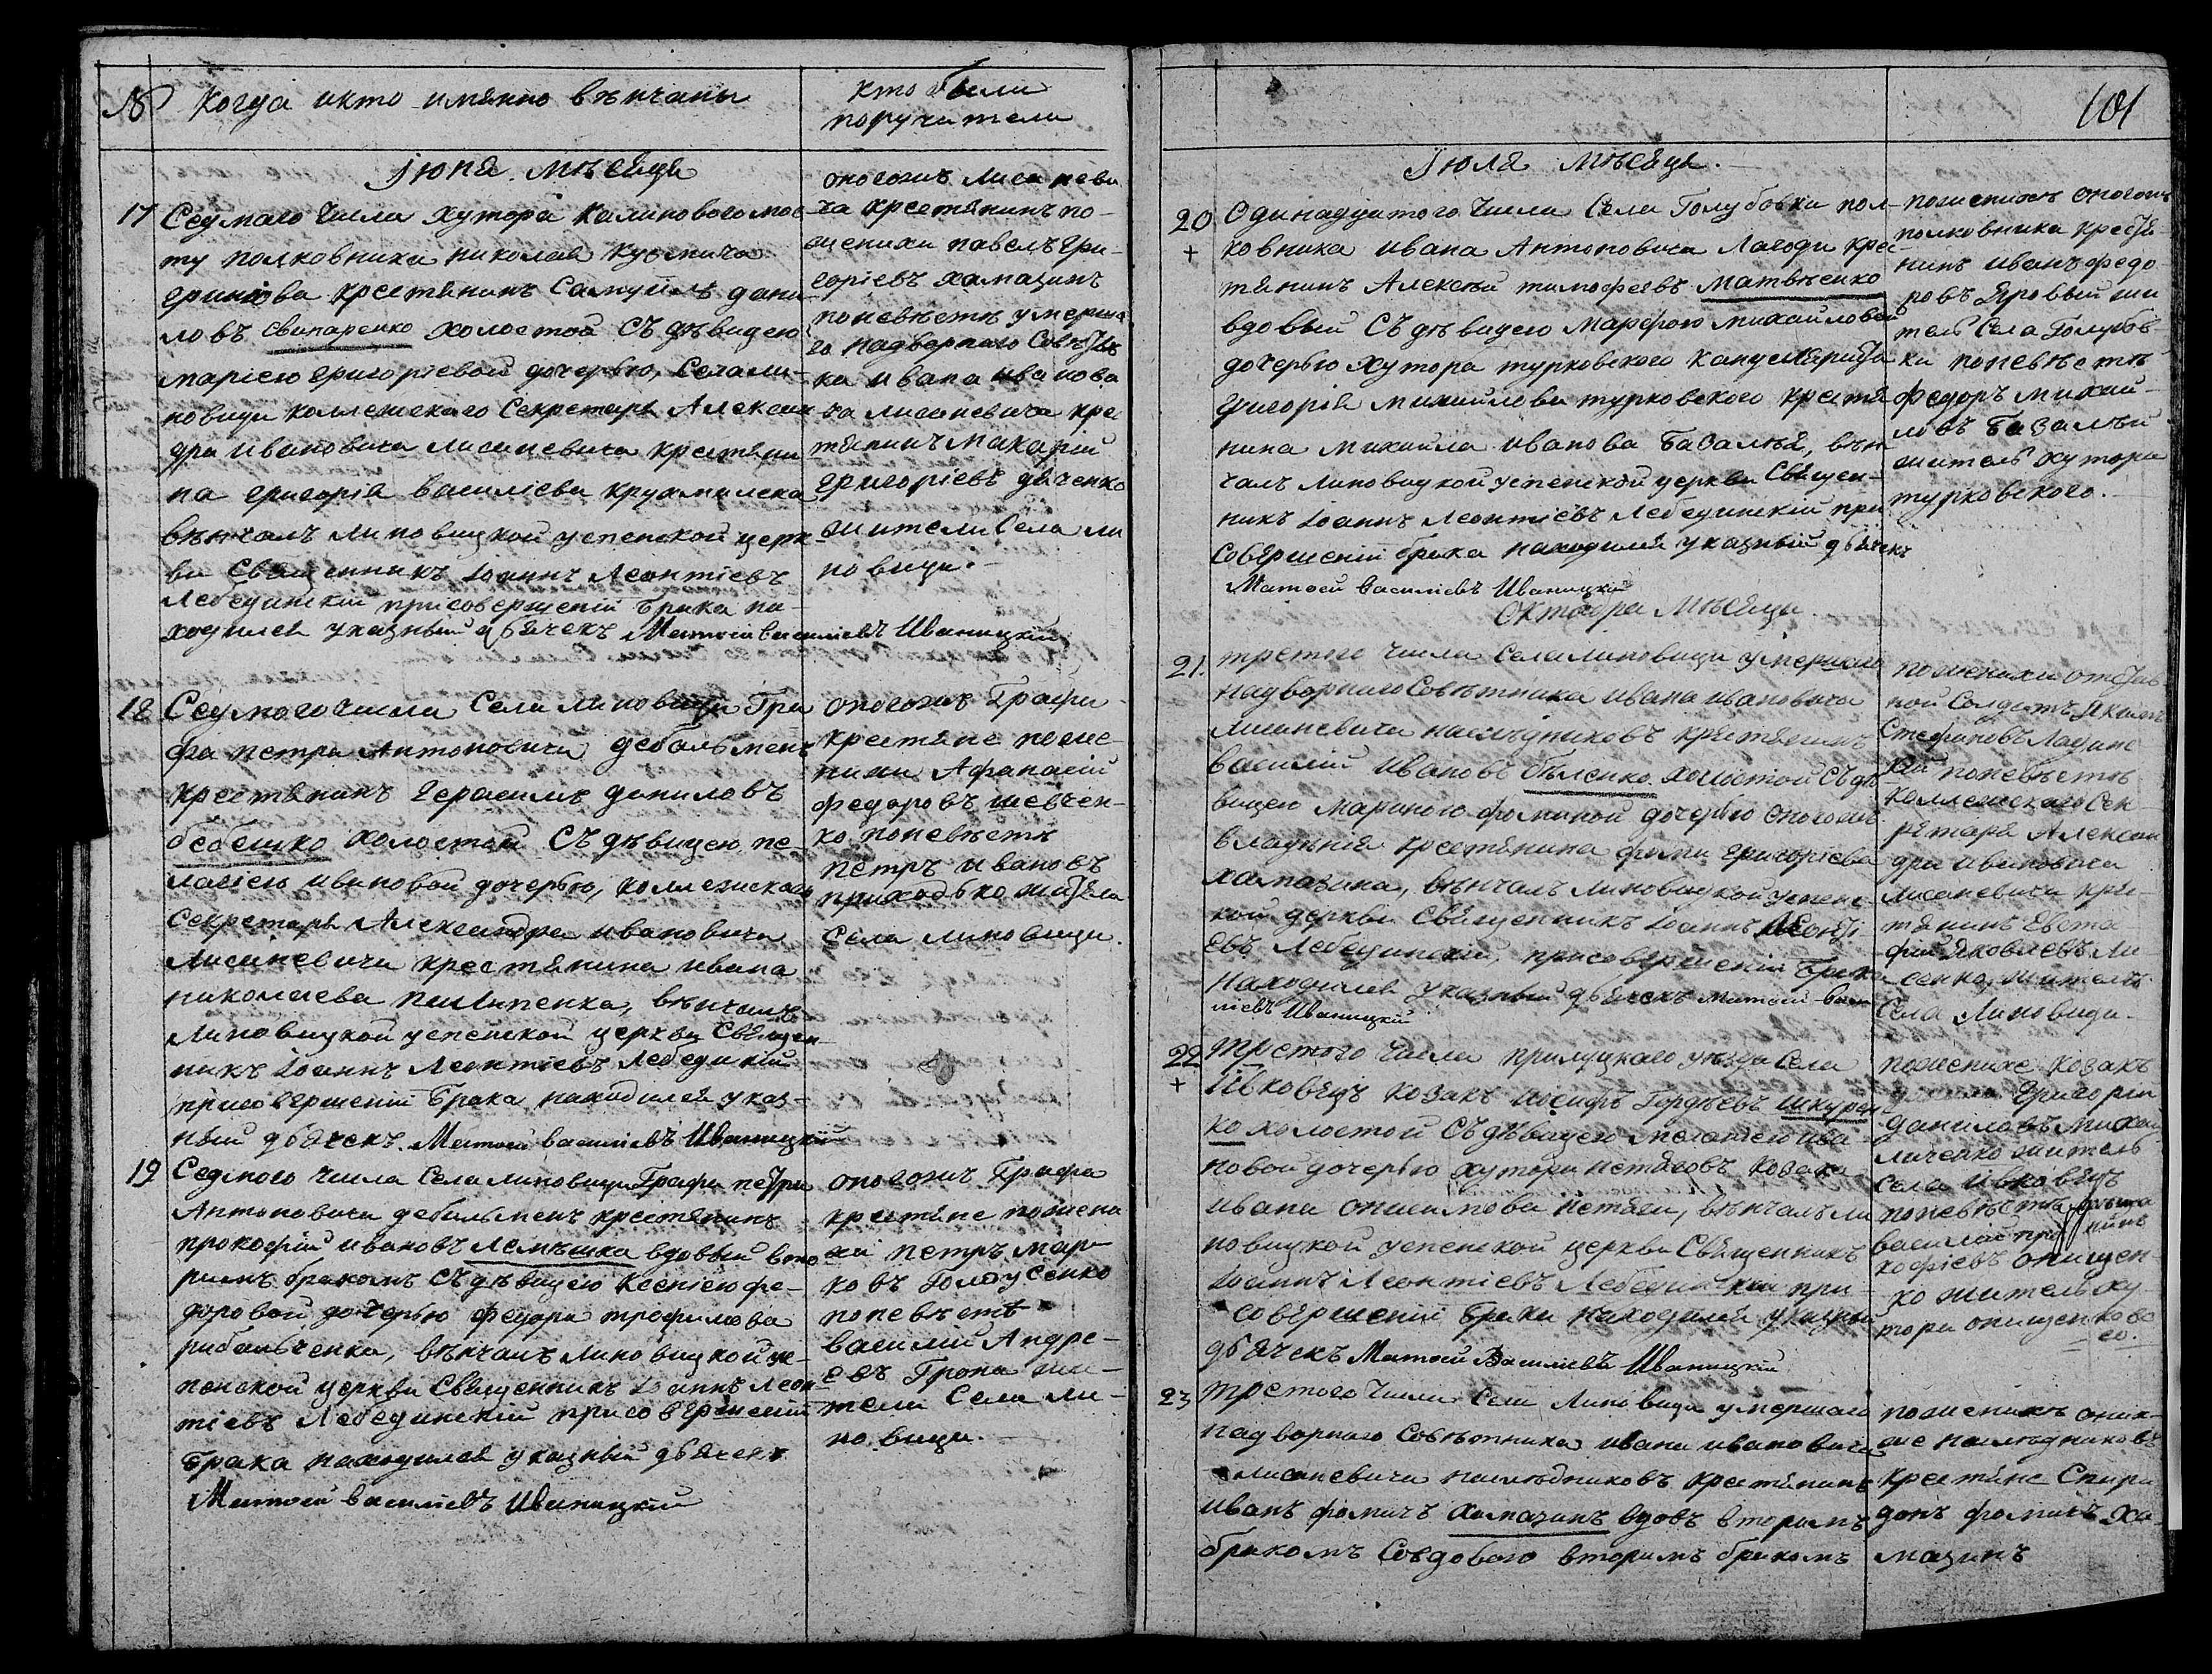 №
Когда икто имянно вѣнчаны
кто были
поручители
Іюня мѣсяца
17
Седмаго числа хутора Калиноваго мос
ту полковника николая кузмича
крестянинъ Самуилъ дани
ловъ Свинаренко холостой Съ дѣвицею
маріею григоріевой дочерью, села ли-
повици коллежскаго Секретаря Алексан
дра ивановича лисаневича крестяни
на григорія василіева
вѣнчалъ липовицкой успенской церк
ви Священникъ Іоаннъ Леонтіевъ
Лебединскій присовершеніи брака на-
ходился указный дьячекъ Матѳей василіевъ Иваницкій
оногожъ Лисаневи
ча крестянинъ по
женихи павелъ гри-
горіевъ хамазинъ
поневѣсте умерша
го надворнаго Совѣтни
ка ивана иванови
ча лисаневича кре
стянинъ макарій
григоріевъ дяченко
жители Села ли
повици.
18
Седмого числа Села липовици Гра
фа петра Антоновича дебальменъ
крестянинъ герасимъ даниловъ
бебешко холостой Съ дѣвицею пе-
лагіею ивановой дочерью, коллежскаго
Секретаря Александра ивановича
Лисаневича крестянина ивана
николаева пилипенка, вѣнчалъ
Липовицкой успенской церкви Священ-
никъ Іоаннъ Леонтіевъ Лебединскій
присовершеніи брака находился указ-
ный дьячекъ Матѳей василіевъ Иваницкій
оногожъ Графа
крестяне поже-
нихи Афанасій
федоровъ шевчен-
ко поневѣсте
петръ ивановъ
приходько жители
Села липовици.
19
Седмого числа Села липовици Графа петра
Антоновича дебальменъ крестянинъ
прокофій ивановъ лемѣшка вдовый вто
римъ бракомъ Съ дѣвицею ксеніею фе-
доровой дочерью федора трофимова
рибальченка, вѣнчалъ Липовицкой ус-
пенской церкви Священникъ Іоаннъ Леон
тіевъ Лебединскій присовершеніи
брака находился указный дьячекъ
Матѳей василіевъ Иваницкій
оногожъ Графа
крестяне пожени
хи петръ мар-
ковъ Голоусенко
поневѣсте
василий Андре-
евъ Грона жи-
тели Села ли-
повици.
101
Іюля мѣсяца.
20
+
Одинадцатого числа Села Голубовки пол-
ковника ивана Антоновича Лагоди крес
тянинъ Алексѣй тимофеевъ матвѣенко
вдовый Съ дѣвицею марфою михайловой
дочерью хутора турковского канцеляриста
григорія михайлова турковского крестя
нина михайла иванова базалѣя, вѣн
чалъ липовицкой успенской церкви Священ-
никъ Іоаннъ Леонтіевъ Лебединскій при
Совершеніи брака находился указный дьячекъ
Матѳей василіевъ Иваницкій
поженихъ оногожъ
полковника крестя
нинъ иванъ федо
ровъ Яровый жи
тель Села Голубов
ки поневѣсте
федоръ михай
ловъ базалѣй
житель хутора
турковского.
Октобра мѣсяца.
21.
третого числа Села липовици умершаго
надворнаго Совѣтника ивана ивановича
лисаневича наслѣдниковъ крестянинъ
василій ивановъ бѣленко холостой Съ дѣ
вицею мариною фоминой дочерью оногожъ
владѣнія крестянина фоми григоріева
хамазина, вѣнчалъ липовицкой успенс
кой церкви Священникъ Іоаннъ Леонті
евъ Лебединскій, присовершеніи брака
находился указный дьячекъ матѳей васи
ліевъ Иваницкій
поженихи отстав
ной Солдатъ Якимъ
Стефановъ
поневѣсте
коллежскаго Сек-
ретаря Алексан
дра ивановича
лисаневича кре-
стянинъ Евста
фій Яковлевъ Ли
сенко, жители
Села Липовици.
22
+
третого числа прилуцкаго уѣзда Села
Ивковецъ козакъ іосифъ Гордѣевъ шкурен
ко холостой Съ дѣвицею меланіею ива
новой дочерью хутора петяговъ козака
ивана онисимова петяги, вѣнчалъ ли
повицкой успенской церкви Священникъ
Іоаннъ Леонтіевъ Лебединскій при
совершеніи брака находился указный
дьячекъ Матѳей Василіевъ Иваницкій
поженихе козакъ
Григорий
даниловъ михай
личенко житель
Села ивковецъ
поневѣсте
василій про
кофіевъ онищен
ко житель ху
тора онищенково
го.
23
третого числа Села Липовици умершаго
надворнаго Совѣтника ивана ивановича
лисаневича наслѣдниковъ крестянинъ
иванъ фомичъ хамазинъ вдовъ вторимъ
бракомъ Совдовою вторимъ бракомъ
поженихъ оних-
же наслѣдниковъ
крестяне Спири
донъ фомичъ ха
мазинъ